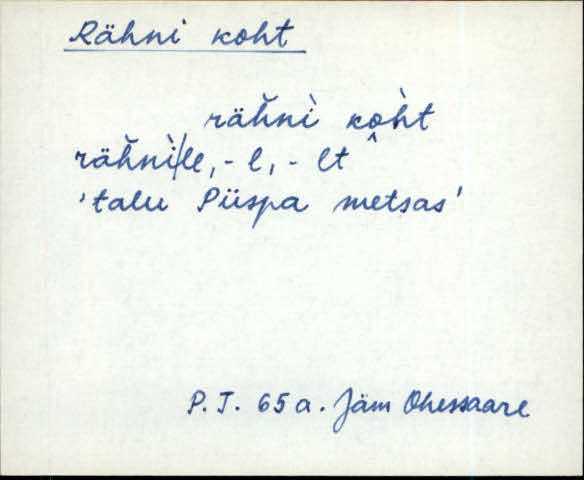 Rähni koht
rähˇnì ko̭h̀t
rähˇnì/le, - l, - lt
'talu Piispa metsas'
P. T. 65 a. Jäm Ohessaare